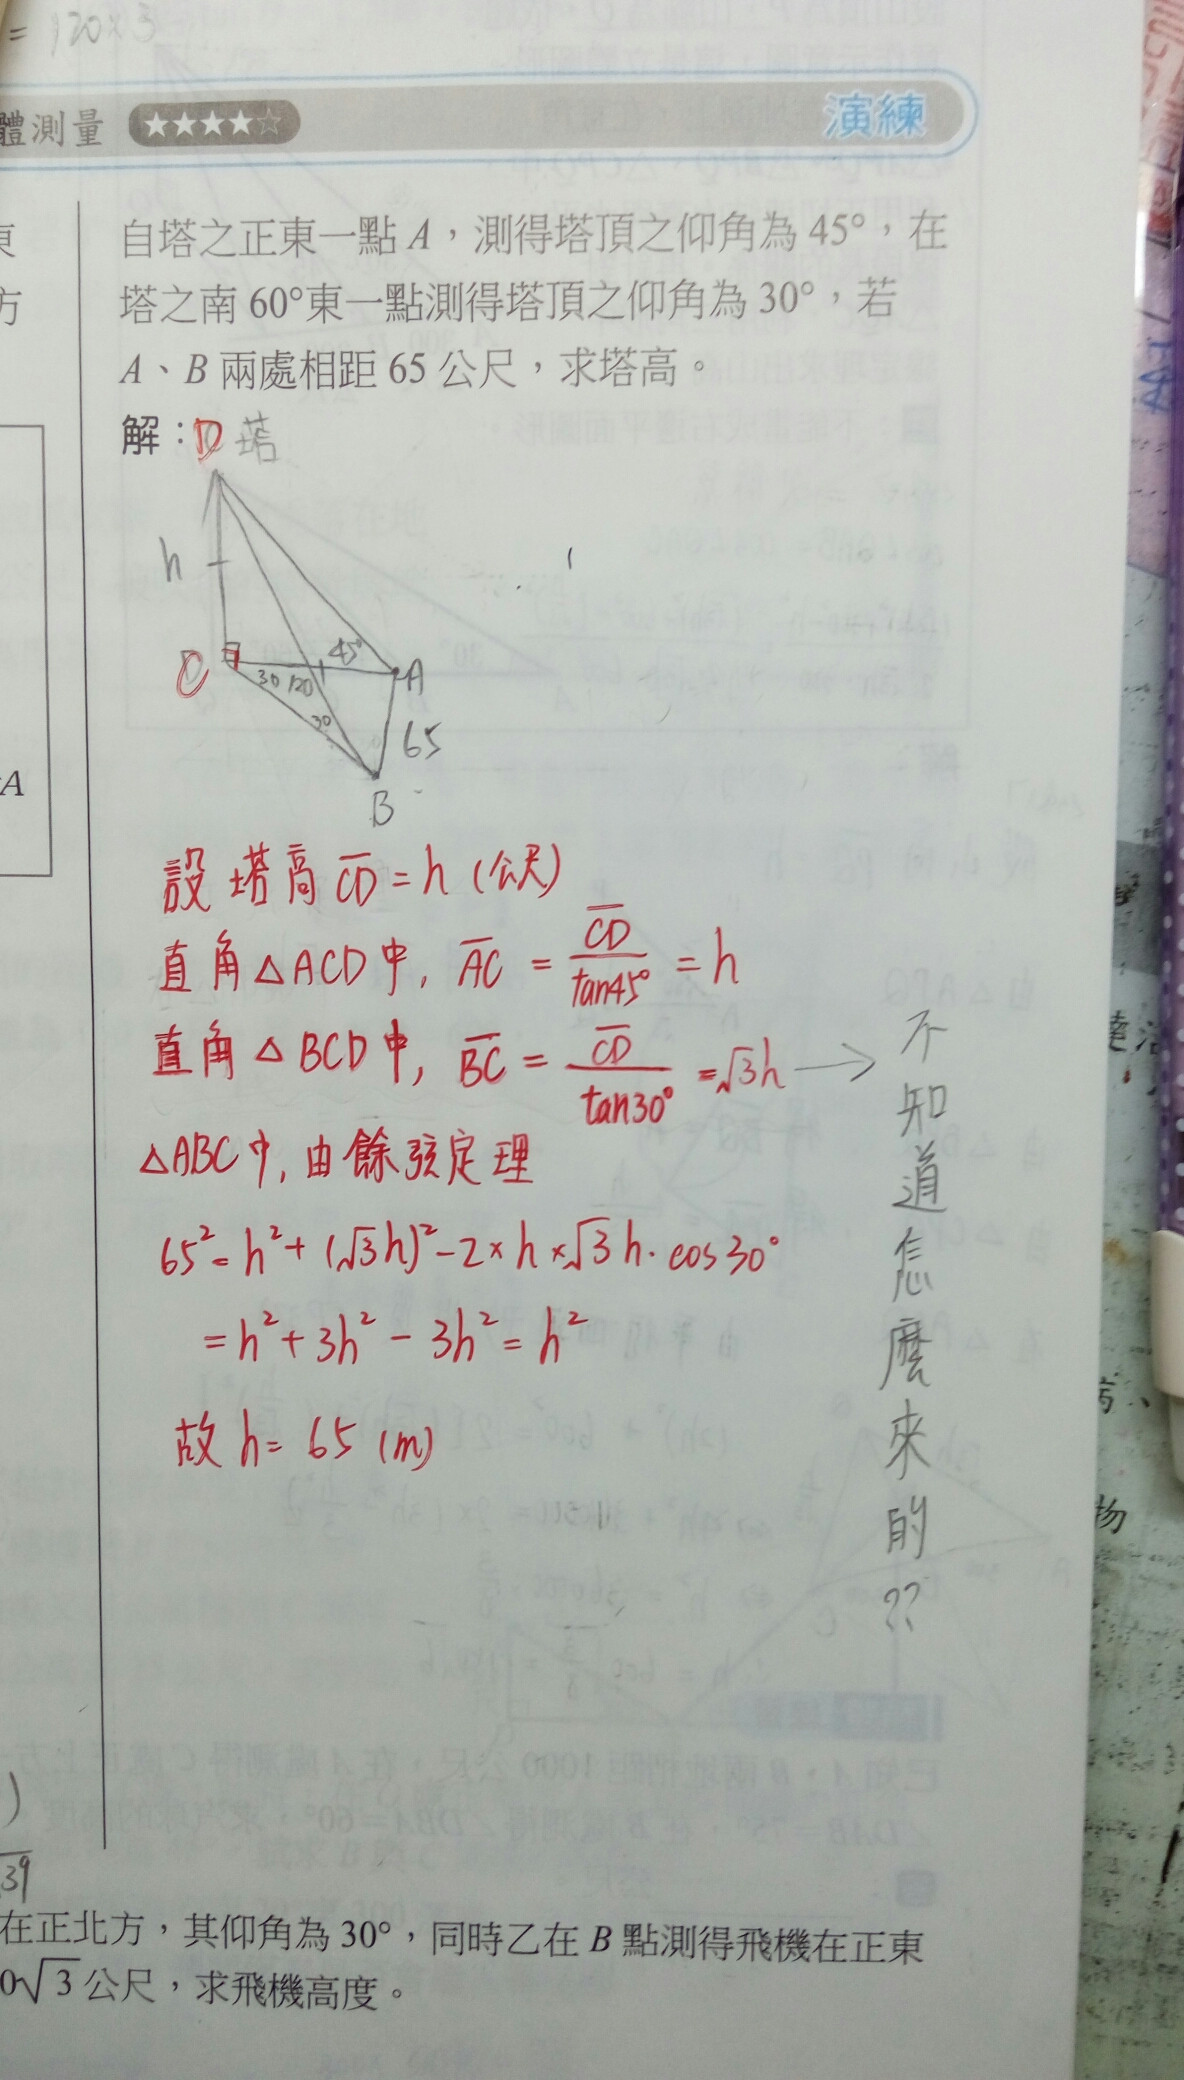 = 120×3
體測量 ★★★★☆ 演練
東
方
自塔之正東一點 A，測得塔頂之仰角為 45°，在
塔之南 60°東一點測得塔頂之仰角為 30°，若
A、B 兩處相距 65 公尺，求塔高。
解：D 塔
h
45°
C
A
30 120
30
65
B
A
設塔高 CD = h (公尺)
直角△ACD中, AC = CD/tan45° = h
直角△BCD中, BC = CD/tan30° = √3h → 不知道怎麼來的??
△ABC中, 由餘弦定理
65² = h² + (√3h)² - 2×h×√3h·cos30°
= h² + 3h² - 3h² = h²
故 h = 65 (m)
物
)
39
在正北方，其仰角為 30°，同時乙在 B 點測得飛機在正東
0√3 公尺，求飛機高度。